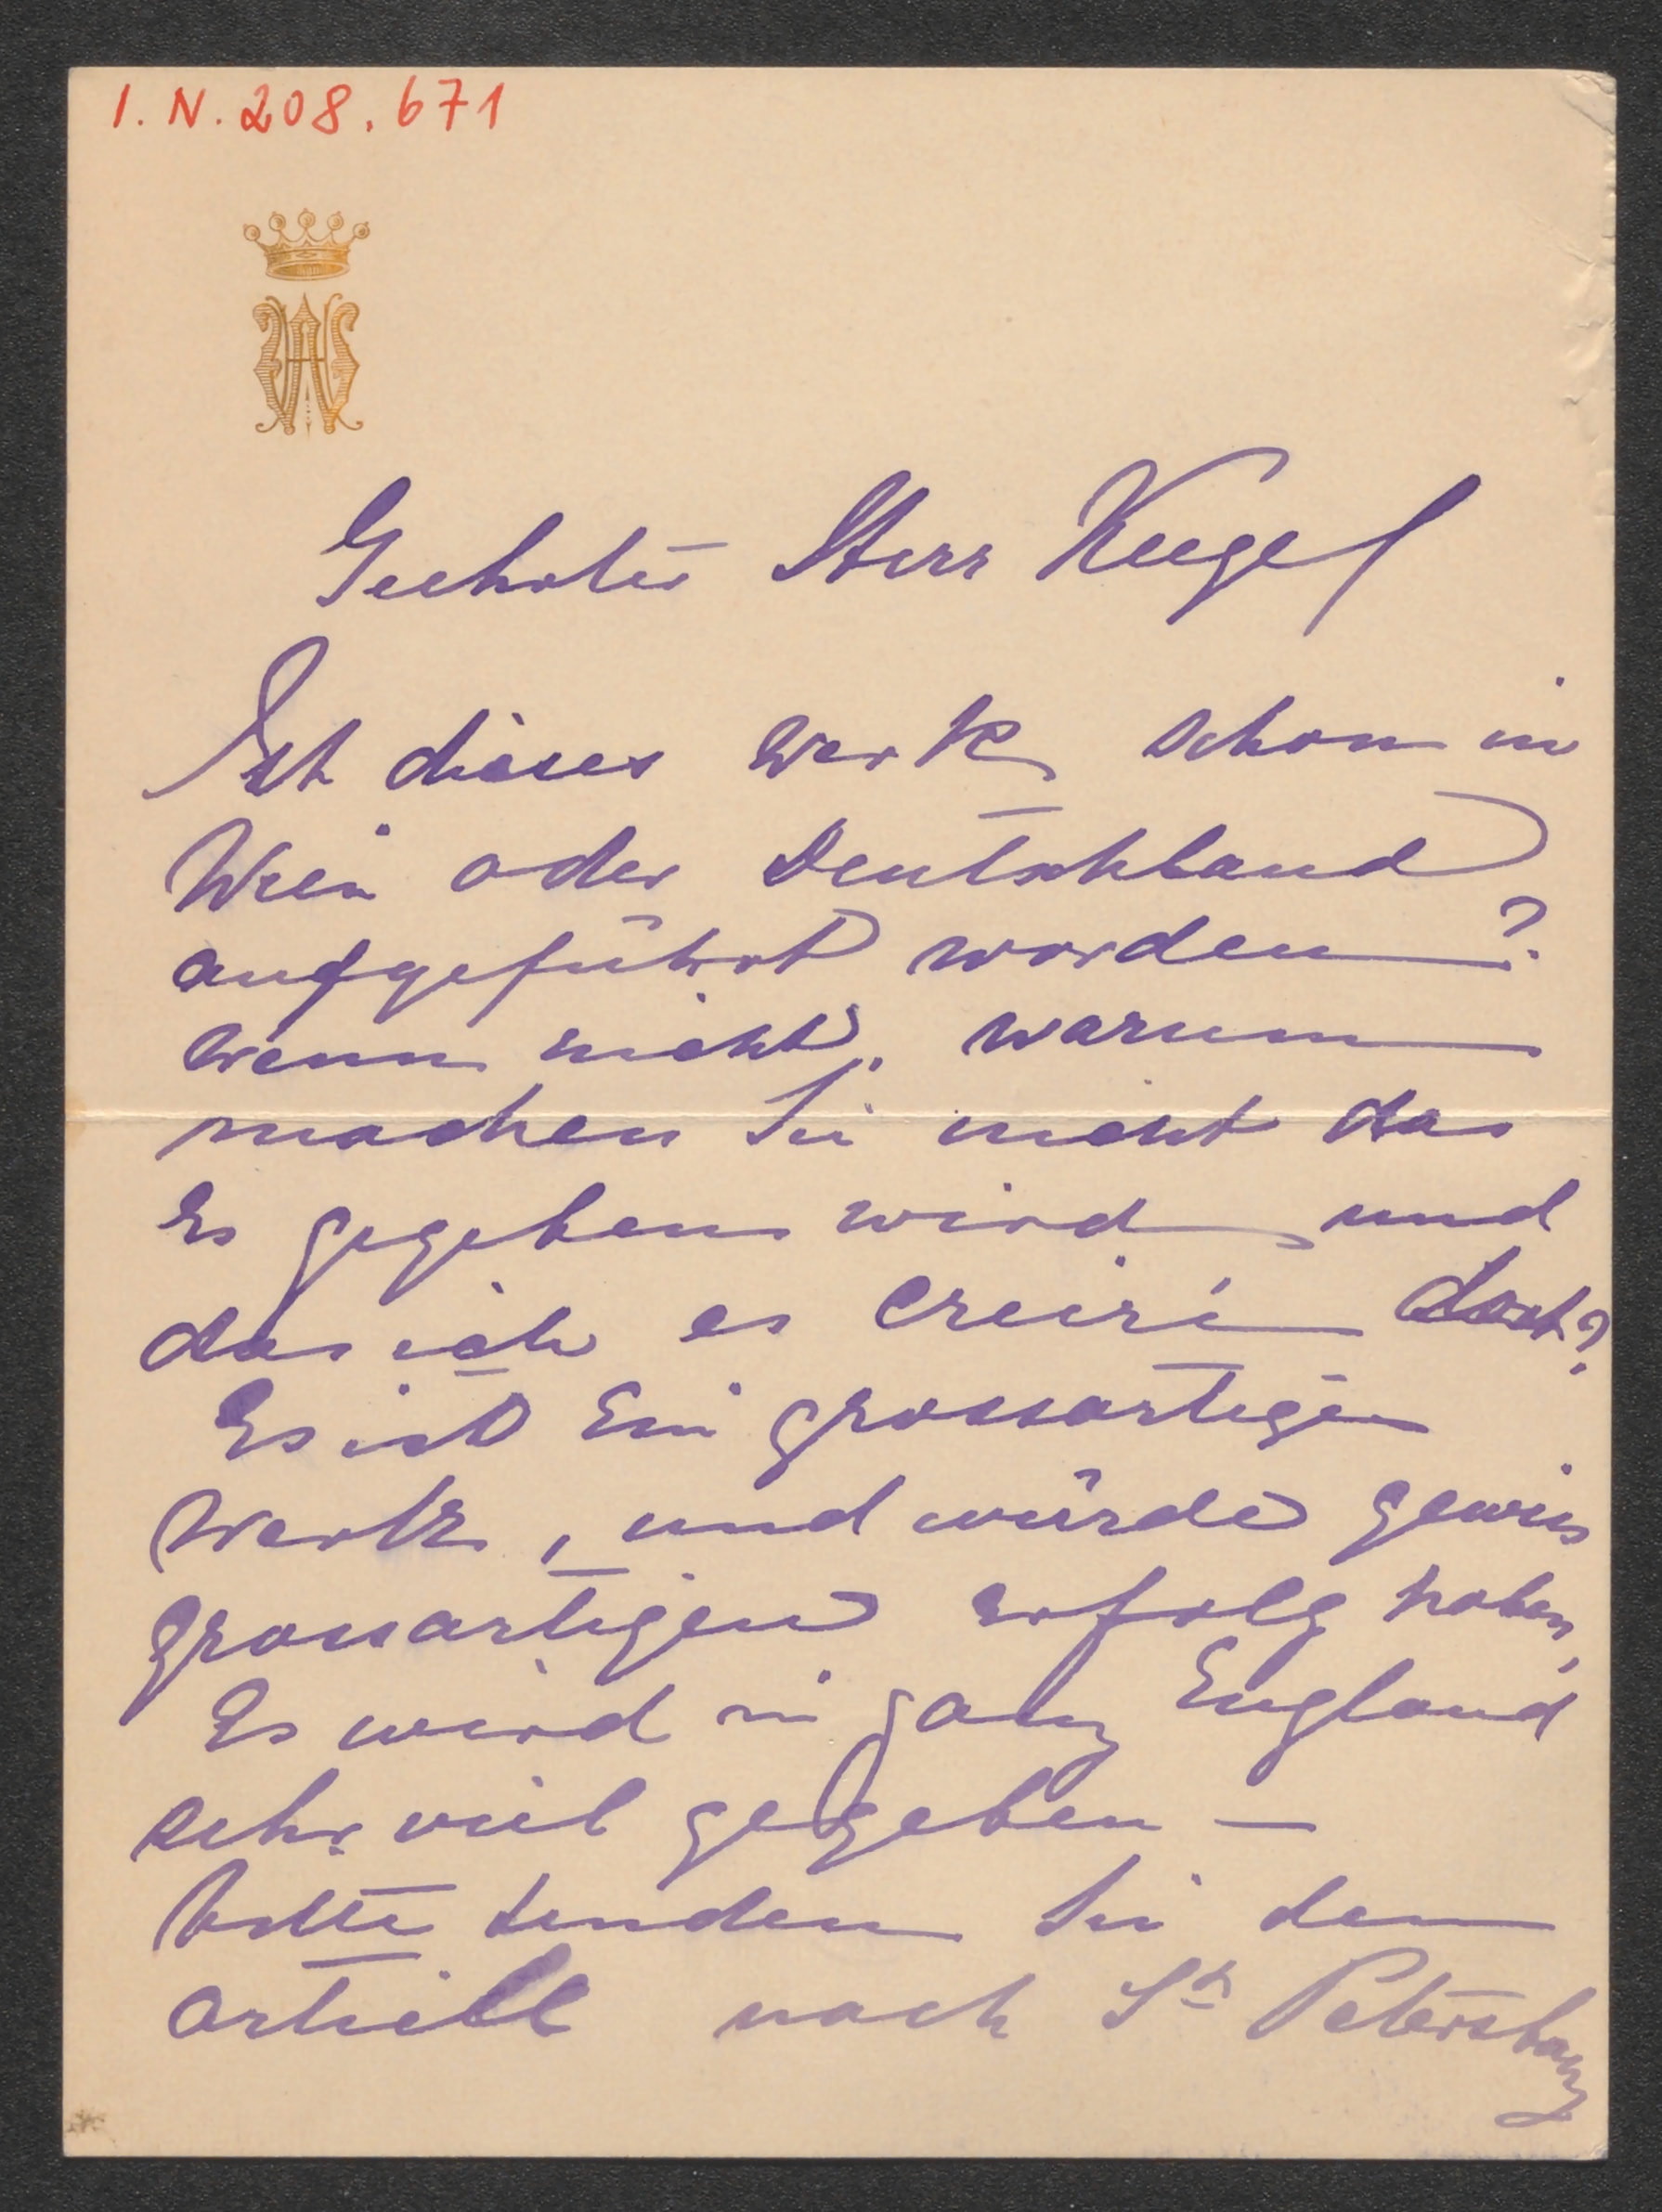 I. N. 208.671
Geehrter Herr Kugel
Ist dieses Werk schon in
Wien oder Deutschland
aufgeführt worden?
Wenn nicht, warum
machen Sie nicht das
Es gegeben wird und
das ich es creire dort?
Es ist Ein grossartiges
Werk, und würde gewiss
grossartigen Erfolg haben,
Es wird in ganz England
sehr viel gegeben –
bitte senden Sie den
Artikel nach St Petersburg